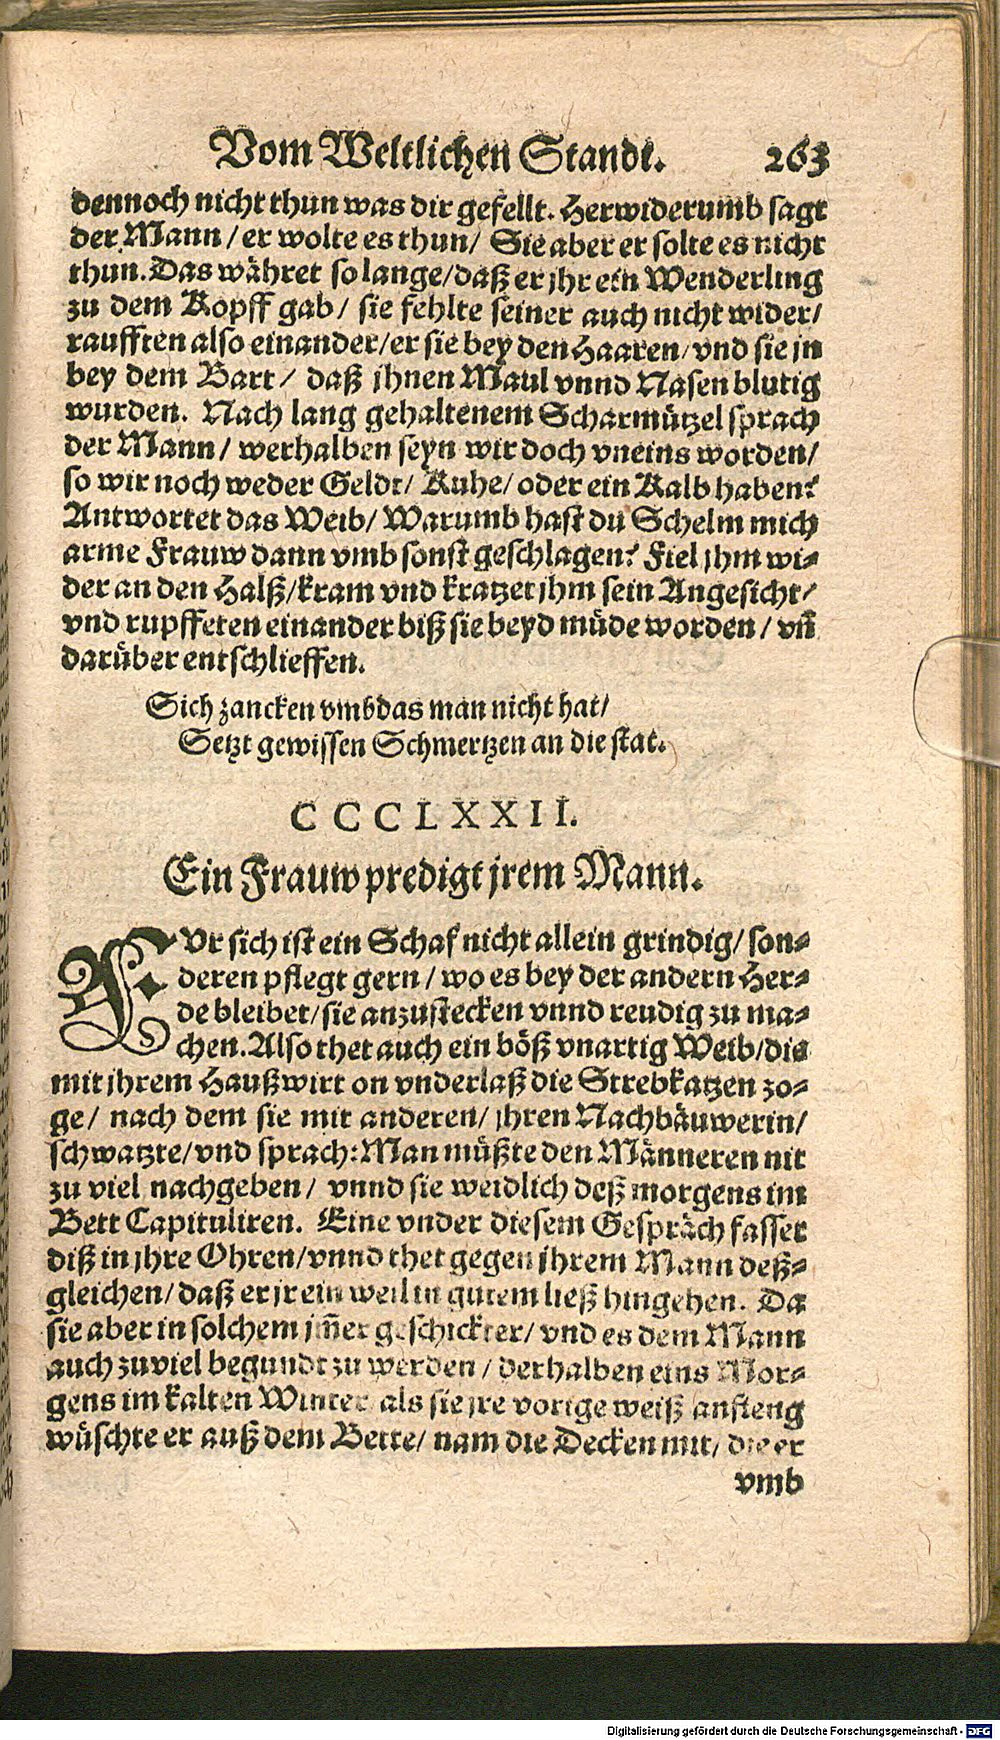 Vom Weltlichen Standt. 263
dennoch nicht thun was dir gefellt. Herwiderumb sagt
der Mann / er wolte es thun / Sie aber er solte es nicht
thun. Das währet so lange / daß er jhr ein Wenderling
zu dem Kopff gab / sie fehlte seiner auch nicht wider /
raufften also einander / er sie bey den Haaren / vnd sie jn
bey dem Bart / daß jhnen Maul vnnd Nasen blutig
wurden. Nach lang gehaltenem Scharmützel sprach
der Mann / werhalben seyn wir doch vneins worden /
so wir noch weder Geldt / Kuhe / oder ein Kalb haben?
Antwortet das Weib / Warumb hast du Schelm mich
arme Frauw dann vmb sonst geschlagen? Fiel jhm wi-
der an den Halß / kram vnd kratzet jhm sein Angesicht /
vnd rupffeten einander biß sie beyd müde worden / vñ
darüber entschlieffen.
Sich zancken vmb das man nicht hat /
Setzt gewissen Schmertzen an die stat.
CCCCLXXII.
Ein Frauw predigt jrem Mann.
FVr sich ist ein Schaf nicht allein grindig / son-
deren pflegt gern / wo es bey der andern Her-
de bleibet / sie anzustecken vnnd reudig zu ma-
chen. Also thet auch ein böß vnartig Weib / die
mit jhrem Haußwirt on vnderlaß die Strebkatzen zo-
ge / nach dem sie mit anderen / jhren Nachbäuwerin /
schwatzte / vnd sprach: Man müßte den Männeren nit
zu viel nachgeben / vnnd sie weidlich deß morgens im
Bett Capituliren. Eine vnder diesem Gespräch fasset
diß in jhre Ohren / vnnd thet gegen jhrem Mann deß-
gleichen / daß er jr ein weil in gutem ließ hingehen. Da
sie aber in solchem jm̃er geschickter / vnd es dem Mann
auch zuviel begundt zu werden / derhalben eins Mor-
gens im kalten Winter als sie jre vorige weiß anfieng
wüschte er auß dem Bette / nam die Decken mit / die er
vmb
Digitalisierung gefördert durch die Deutsche Forschungsgemeinschaft - DFG